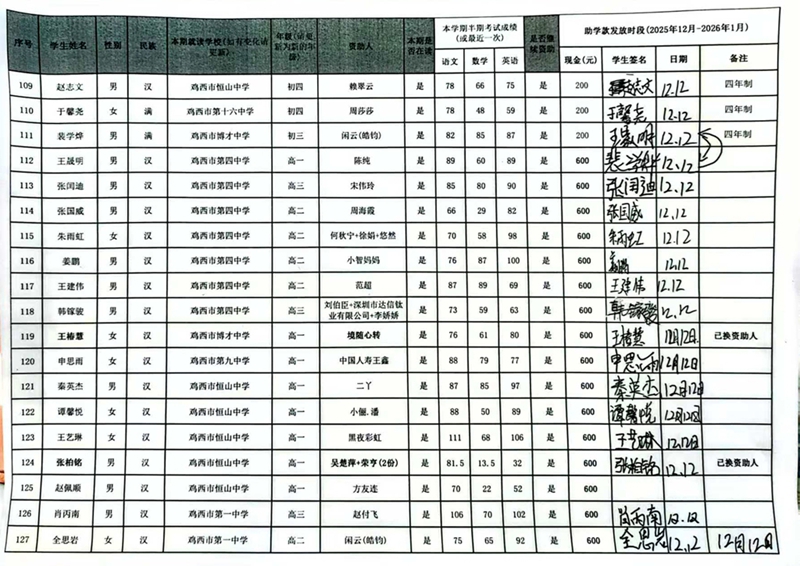 序号 学生姓名 性别 民族 本期就读学校(如有变化请更新) 年级(请更新为新的年级) 资助人 本期是否在读 本学期半期考试成绩(或最近一次) 语文 数学 英语 是否继续资助 助学款发放时段(2025年12月-2026年1月) 现金(元) 学生签名 日期 备注
109 赵志文 男 汉 鸡西市恒山中学 初四 赖翠云 是 78 66 75 是 200 赵志文 12.12 四年制
110 于馨尧 女 满 鸡西市第十六中学 初四 周莎莎 是 78 48 59 是 200 于馨尧 12.12 四年制
111 裴学烨 男 满 鸡西市博才中学 初三 闲云(皓钧) 是 82 85 87 是 200 王晟明 12.12 四年制
112 王晟明 男 汉 鸡西市第四中学 高一 陈纯 是 89 60 89 是 600 裴学烨 12.12
113 张闰迪 男 汉 鸡西市第四中学 高三 宋伟玲 是 85 80 90 是 600 张闰迪 12.12
114 张国威 男 汉 鸡西市第四中学 高二 周海霞 是 66 29 82 是 600 张国威 12.12
115 朱雨虹 女 汉 鸡西市第四中学 高二 何秋宁+徐娟+悠然 是 70 58 98 是 600 朱雨虹 12.12
116 姜鹏 男 汉 鸡西市第四中学 高二 小智妈妈 是 76 87 100 是 600 12.12
117 王建伟 男 汉 鸡西市第四中学 高二 范超 是 87 89 69 是 600 王建伟 12.12
118 韩镓骏 男 汉 鸡西市第四中学 高三 刘伯臣+深圳市达信钛业有限公司+李娇娇 是 73 59 63 是 600 韩镓骏 12.12
119 王椿慧 女 汉 鸡西市博才中学 高一 境随心转 是 76 61 80 是 600 王椿慧 12月12日 已换资助人
120 申思雨 女 汉 鸡西市第九中学 高一 中国人寿王鑫 是 88 79 77 是 600 申思雨 12月12日
121 秦英杰 男 汉 鸡西市恒山中学 高一 二丫 是 87 85 97 是 600 秦英杰 12月12日
122 谭馨悦 女 汉 鸡西市恒山中学 高一 小俪.潘 是 88 50 89 是 600 谭馨悦 12月12日
123 王艺琳 女 汉 鸡西市恒山中学 高一 黑夜彩虹 是 111 68 106 是 600 王艺琳 12.12日
124 张柏铭 男 汉 鸡西市恒山中学 高一 吴楚萍+荣亨(2份) 是 81.5 13.5 32 是 600 张柏铭 12.12 已换资助人
125 赵佩顺 男 汉 鸡西市恒山中学 高一 方友连 是 70 22 52 是 600
126 肖丙南 男 汉 鸡西市第一中学 高三 赵付飞 是 106 70 102 是 600 肖丙南 12.12
127 全思岩 女 汉 鸡西市第一中学 高二 闲云(皓钧) 是 75 65 92 是 600 全思岩 12.12 12月12日